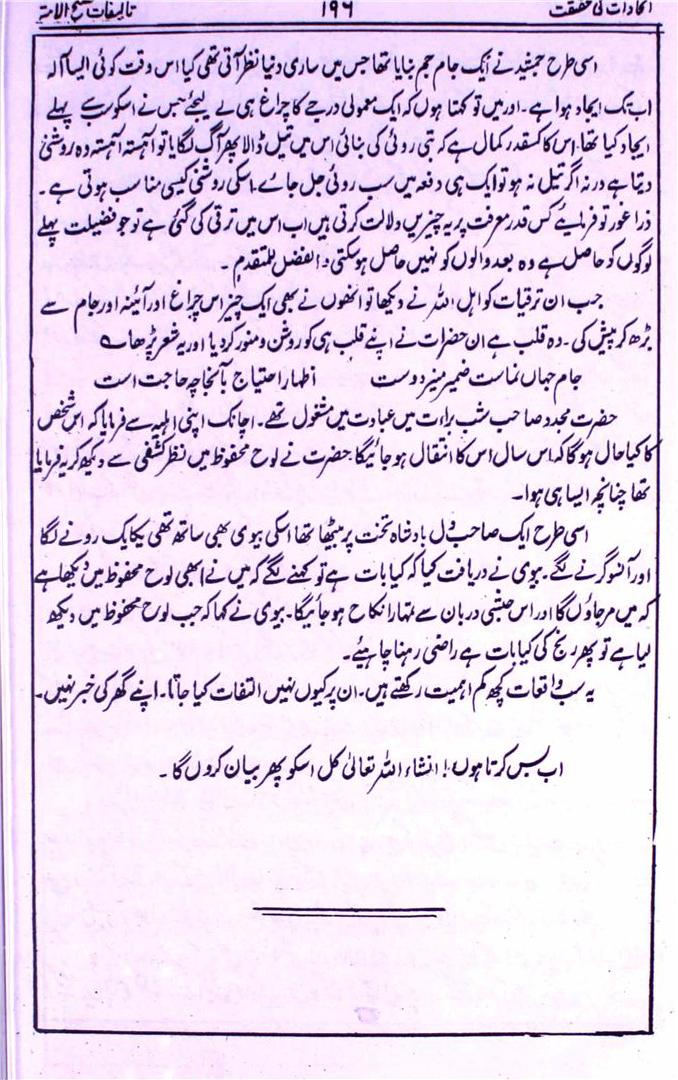 ایجادات کی حقیقت ۱۹۶ تالیفات مسیح الامت
اسی طرح جمشید نے ایک جام جم بنایا تھا جس میں ساری دنیا نظر آتی تھی کیا اس وقت کوئی ایسا آلہ
اب تک ایجاد ہوا ہے۔ اور میں تو کہتا ہوں کہ ایک معمولی درجے کا چراغ ہی لے لیجئے جس نے اسکو سب سے پہلے
ایجاد کیا تھا۔ اس کا کسقدر کمال ہے کہ بتی روئی کی بنائی اس میں تیل ڈالا پھر آگ لگایا تو آہستہ آہستہ وہ روشنی
دیتا ہے ورنہ اگر تیل نہ ہو تو ایک ہی دفعہ میں سب روئی جل جائے۔ اسکی روشنی کیسی مناسب ہوتی ہے۔
ذرا غور تو فرمایئے کس قدر معرفت پر یہ چیزیں دلالت کرتی ہیں اب اس میں ترقی کی گئی ہے تو جو فضیلت پہلے
لوگوں کو حاصل ہے وہ بعد والوں کو نہیں حاصل ہوسکتی، الفضل للمتقدم۔
جب ان ترقیات کو اہل اللہ نے دیکھا تو انھوں نے بھی ایک چیز اس چراغ اور آئینہ اور جام سے
بڑھ کر پیش کی۔ وہ قلب ہے ان حضرات نے اپنے قلب ہی کو روشن و منور کر دیا اور یہ شعر پڑھا ؎
جام جہاں نماست ضمیر منیر دوست اظہار احتیاج با آنجا چہ حاجت است
حضرت مجدد صاحب شب برات میں عبادت میں مشغول تھے۔ اچانک اپنی اہلیہ سے فرمایا کہ اس شخص
کا کیا حال ہوگا کہ اس سال اس کا انتقال ہو جائیگا حضرت نے لوح محفوظ میں نظر کشفی سے دیکھ کر یہ فرمایا
تھا چنانچہ ایسا ہی ہوا۔
اسی طرح ایک صاحب دل بادشاہ تخت پر بیٹھا تھا اسکی بیوی بھی ساتھ تھی یکایک رونے لگا
اور آنسو گرنے لگے۔ بیوی نے دریافت کیا کہ کیا بات ہے تو کہنے لگے کہ میں نے ابھی لوح محفوظ میں دیکھا ہے
کہ میں مر جاؤں گا اور اس حبشی دربان سے تمہارا نکاح ہو جائیگا۔ بیوی نے کہا کہ جب لوح محفوظ میں دیکھ
لیا ہے تو پھر رنج کی کیا بات ہے راضی رہنا چاہیئے۔
یہ سب واقعات کچھ کم اہمیت رکھتے ہیں۔ ان پر کیوں نہیں التفات کیا جاتا۔ اپنے گھر کی خبر نہیں۔
اب بس کرتا ہوں! انشاء اللہ تعالیٰ کل اسکو پھر بیان کروں گا۔